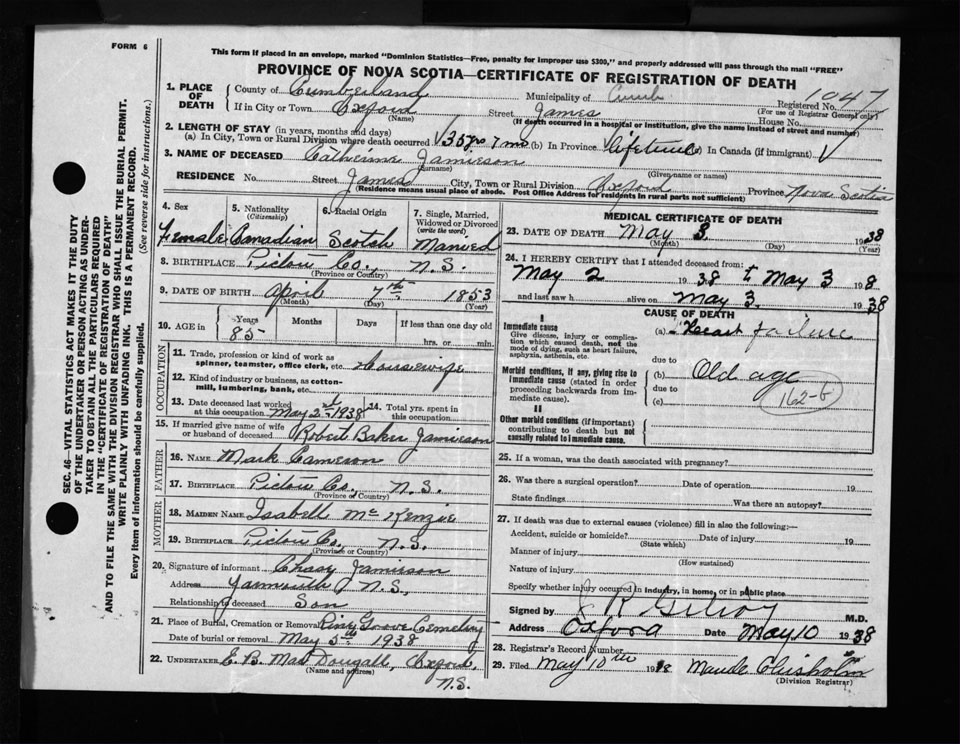 FORM 6
This form if placed in an envelope, marked "Dominion Statistics—Free, penalty for improper use $300," and properly addressed will pass through the mail "FREE"
PROVINCE OF NOVA SCOTIA—CERTIFICATE OF REGISTRATION OF DEATH
1. PLACE OF DEATH County of Cumberland Municipality of Cumb Registered No. 1047
(For use of Registrar General only)
If in City or Town Oxford Street James House No.
(Name) (If death occurred in a hospital or institution, give the name instead of street and number)
2. LENGTH OF STAY (in years, months and days)
(a) In City, Town or Rural Division where death occurred 35 yrs 7 mo (b) In Province lifetime (c) In Canada (if immigrant)
3. NAME OF DECEASED Catherine Jamieson
(Surname) (Given name or names)
RESIDENCE No. Street James City, Town or Rural Division Oxford Province Nova Scotia
(Residence means usual place of abode. Post Office Address for residents in rural parts not sufficient)
SEC. 46—VITAL STATISTICS ACT MAKES IT THE DUTY
OF THE UNDERTAKER OR PERSON ACTING AS UNDER-
TAKER TO OBTAIN ALL THE PARTICULARS REQUIRED
IN THE "CERTIFICATE OF REGISTRATION OF DEATH"
AND TO FILE THE SAME WITH THE DIVISION REGISTRAR WHO SHALL ISSUE THE BURIAL PERMIT.
WRITE PLAINLY WITH UNFADING INK. THIS IS A PERMANENT RECORD.
Every item of information should be carefully supplied. (See reverse side for instructions.)
4. Sex 5. Nationality (Citizenship) 6. Racial Origin 7. Single, Married, Widowed or Divorced (write the word)
Female Canadian Scotch Married
8. BIRTHPLACE Pictou Co., N.S.
(Province or Country)
9. DATE OF BIRTH April 7th 1853
(Month) (Day) (Year)
10. AGE in Years Months Days If less than one day old
85 hrs. or min.
OCCUPATION
11. Trade, profession or kind of work as spinner, teamster, office clerk, etc. Housewife
12. Kind of industry or business, as cotton-mill, lumbering, bank, etc.
13. Date deceased last worked at this occupation May 2nd 1938 14. Total yrs. spent in this occupation
15. If married give name of wife or husband of deceased Robert Baker Jamieson
FATHER
16. NAME Mark Cameron
17. BIRTHPLACE Pictou Co. N.S.
(Province or Country)
MOTHER
18. MAIDEN NAME Isabell McKenzie
19. BIRTHPLACE Pictou Co. N.S.
(Province or Country)
20. Signature of informant Jamieson
Address Yarmouth N.S.,
Relationship to deceased Son
21. Place of Burial, Cremation or Removal Piny Grove Cemetery
Date of burial or removal May 5th 1938
22. UNDERTAKER E. B. MacDougall, Oxford, N.S.
(Name and address)
MEDICAL CERTIFICATE OF DEATH
23. DATE OF DEATH May 3. 1938
(Month) (Day) (Year)
24. I HEREBY CERTIFY that I attended deceased from:
May 2 1938 to May 3 19 8
and last saw h alive on May 3. 1938
CAUSE OF DEATH
I
Immediate cause
Give disease, injury or complication which caused death, not the mode of dying, such as heart failure, asphyxia, asthenia, etc.
(a) Heart failure
due to
Morbid conditions, if any, giving rise to immediate cause (stated in order proceeding backwards from immediate cause).
(b) Old age
due to
(c) 162-b
II
Other morbid conditions (if important) contributing to death but not causally related to immediate cause.
25. If a woman, was the death associated with pregnancy?
26. Was there a surgical operation? Date of operation 19
State findings Was there an autopsy?
27. If death was due to external causes (violence) fill in also the following:—
Accident, suicide or homicide? Date of injury 19
(State which)
Manner of injury
(How sustained)
Nature of injury
Specify whether injury occurred in industry, in home, or in public place
Signed by J R Gilroy M.D.
Address Oxford Date May 10 1938
28. Registrar's Record Number
29. Filed May 10th 1938 Maude Chisholm
(Division Registrar)